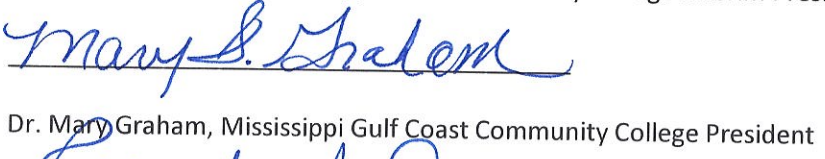 Mary S. Graham
Dr. Mary Graham, Mississippi Gulf Coast Community College President